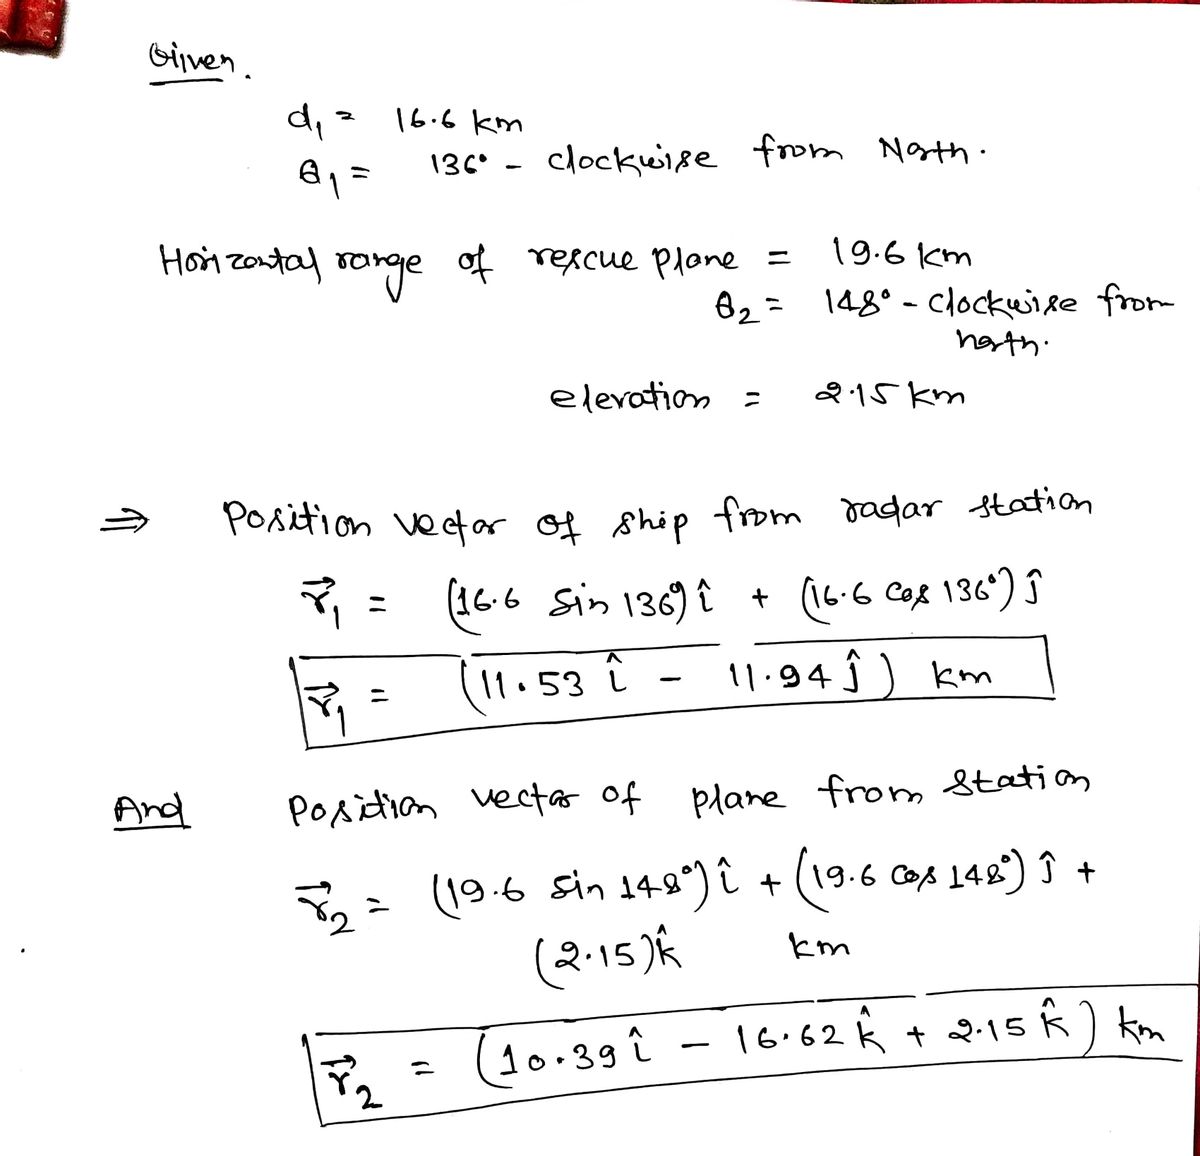 Given.
d₁ = 16.6 km
θ₁ = 136° - clockwise from North.
Horizontal range of rescue plane = 19.6 km
θ₂ = 148° - clockwise from
north.
elevation = 2.15 km
⇒ Position vector of ship from radar station
r⃗₁ = (16.6 sin 136°) î + (16.6 cos 136°) ĵ
r⃗₁ = (11.53 î - 11.94 ĵ) km
And Position vector of plane from station
r⃗₂ = (19.6 sin 148°) î + (19.6 cos 148°) ĵ +
(2.15) k̂ km
r⃗₂ = (10.39 î - 16.62 k̂ + 2.15 k̂) km